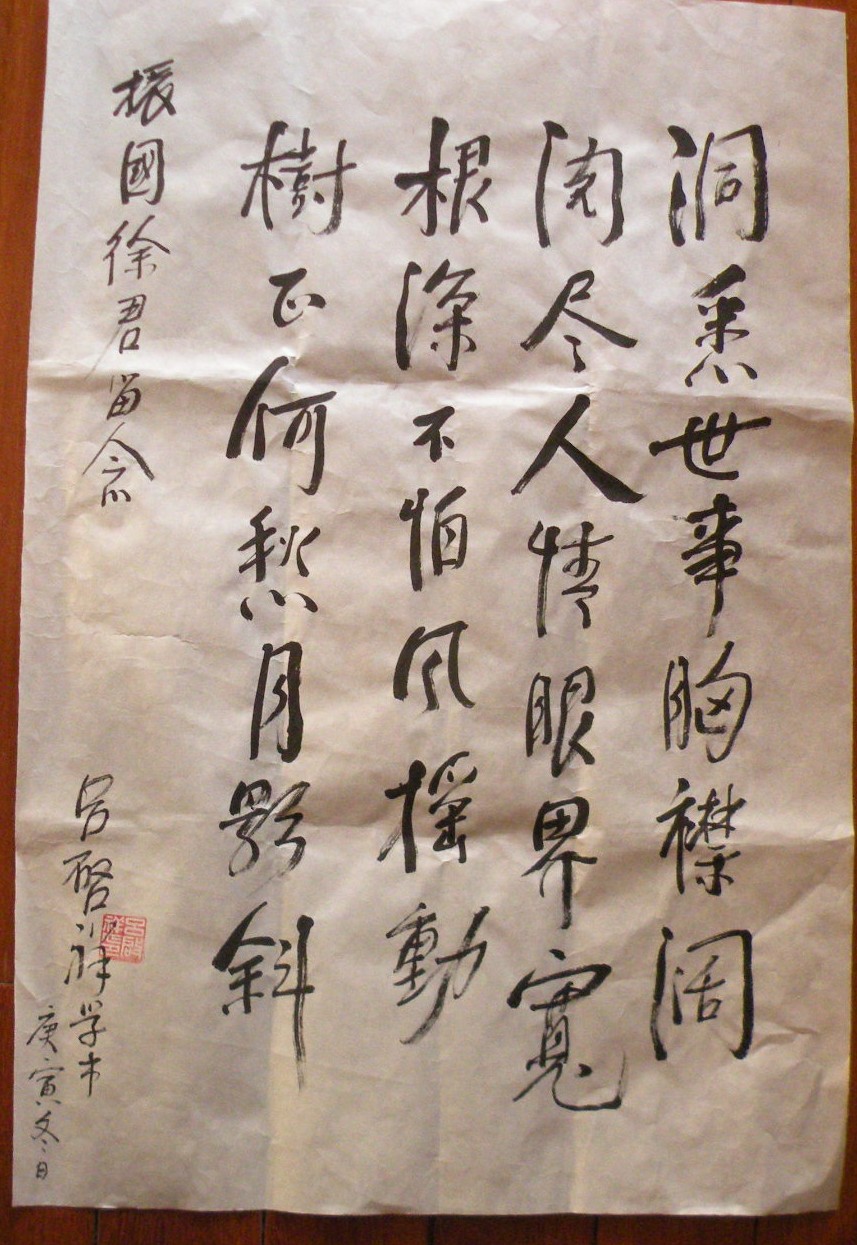 洞悉世事胸襟阔
阅尽人情眼界寬
根深不怕风摇動
樹正何愁月影斜
振國徐君留念
吕啓祥学书
庚寅冬日